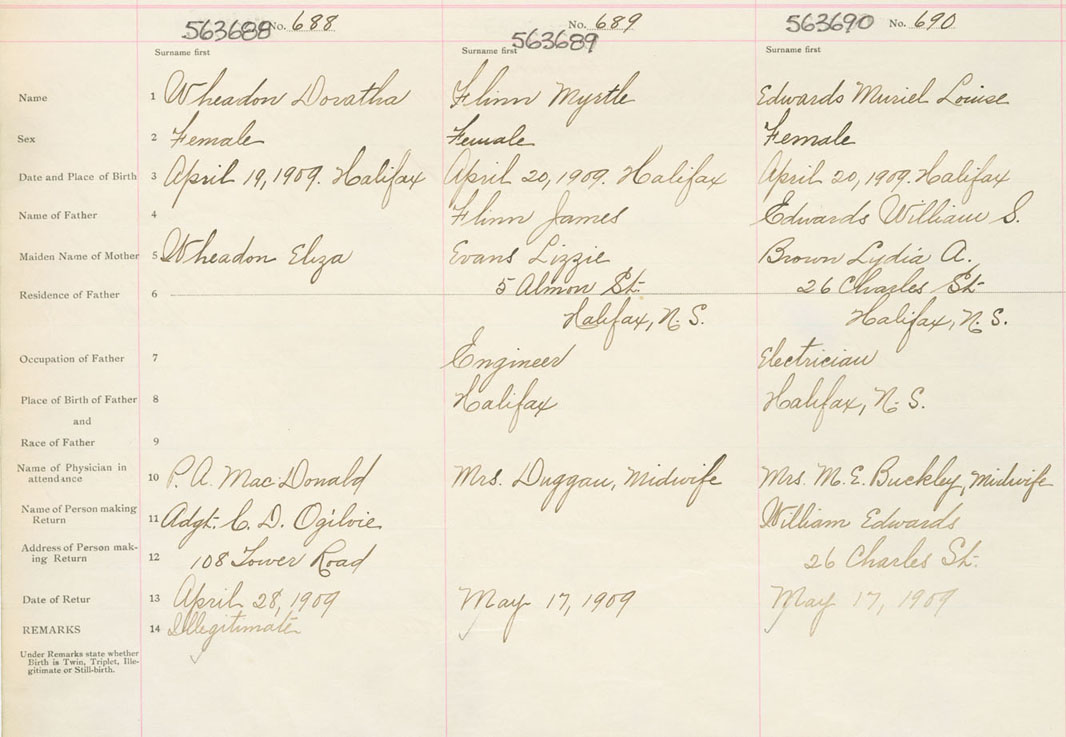 563688 No. 688 563689 No. 689 563690 No. 690
Surname first Surname first Surname first
Name 1 Wheadon Doratha Flinn Myrtle Edwards Muriel Louise
Sex 2 Female Female Female
Date and Place of Birth 3 April 19, 1909. Halifax April 20, 1909. Halifax April 20, 1909. Halifax
Name of Father 4 Flinn James Edwards William S.
Maiden Name of Mother 5 Wheadon Eliza Evans Lizzie Brown Lydia A.
Residence of Father 6 5 Almon St. 26 Charles St.
Halifax, N.S. Halifax, N.S.
Occupation of Father 7 Engineer Electrician
Place of Birth of Father 8 Halifax Halifax, N.S.
and
Race of Father 9
Name of Physician in
attendance 10 P. A. MacDonald Mrs. Duggan, Midwife Mrs. M. E. Buckley, Midwife
Name of Person making
Return 11 Adgt. C. D. Ogilvie William Edwards
Address of Person mak-
ing Return 12 108 Tower Road 26 Charles St.
Date of Retur 13 April 28, 1909 May 17, 1909 May 17, 1909
REMARKS 14 Illegitimate
Under Remarks state whether
Birth is Twin, Triplet, Ille-
gitimate or Still-birth.